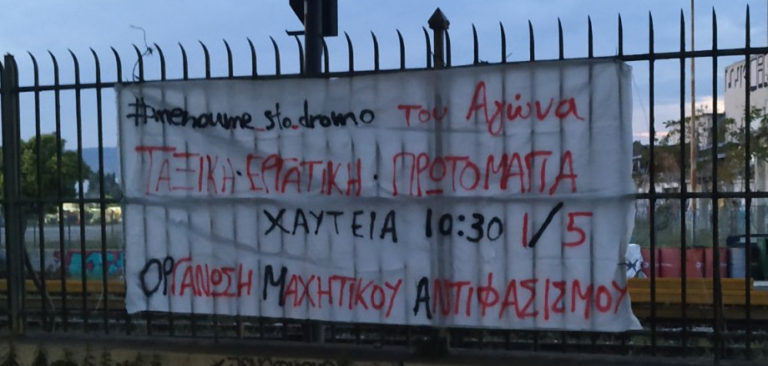 #menoume_sto_dromo του Αγώνα
ΤΑΞΙΚΗ·ΕΡΓΑΤΙΚΗ·ΠΡΩΤΟΜΑΓΙΑ
ΧΑΥΤΕΙΑ 10:30 1/5
ΟΡΓΑΝΩΣΗ ΜΑΧΗΤΙΚΟΥ ΑΝΤΙΦΑΣΙΣΜΟΥ